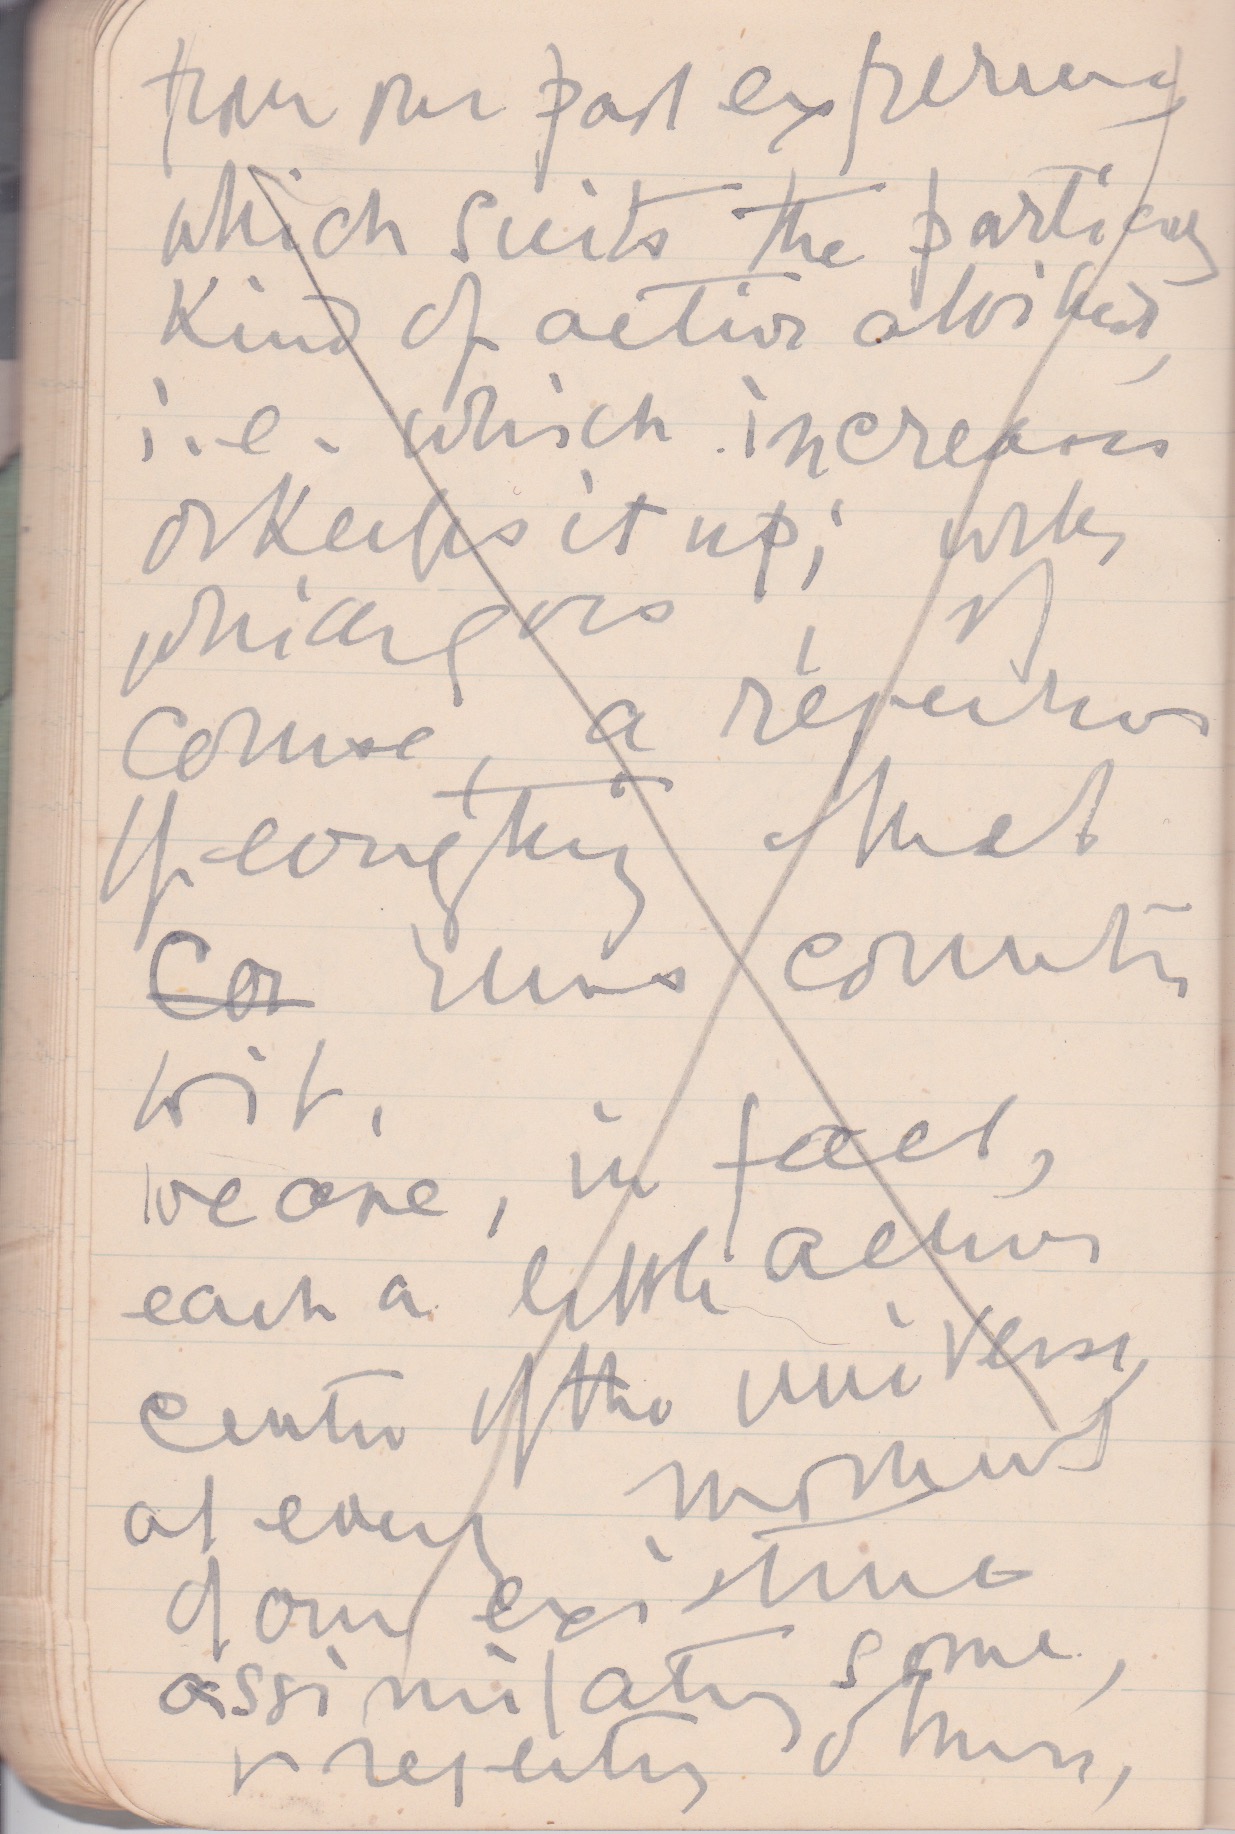 from our past experience
which suits the particular
kind of action at work,
i.e. which increases
or keeps it up; with
which goes, of
course, a rejection
of everything that
Cor runs counter
to it.
We are, in fact,
each a little active
centre of the universe,
at every moment
of our existence
assimilating some,
& rejecting others,